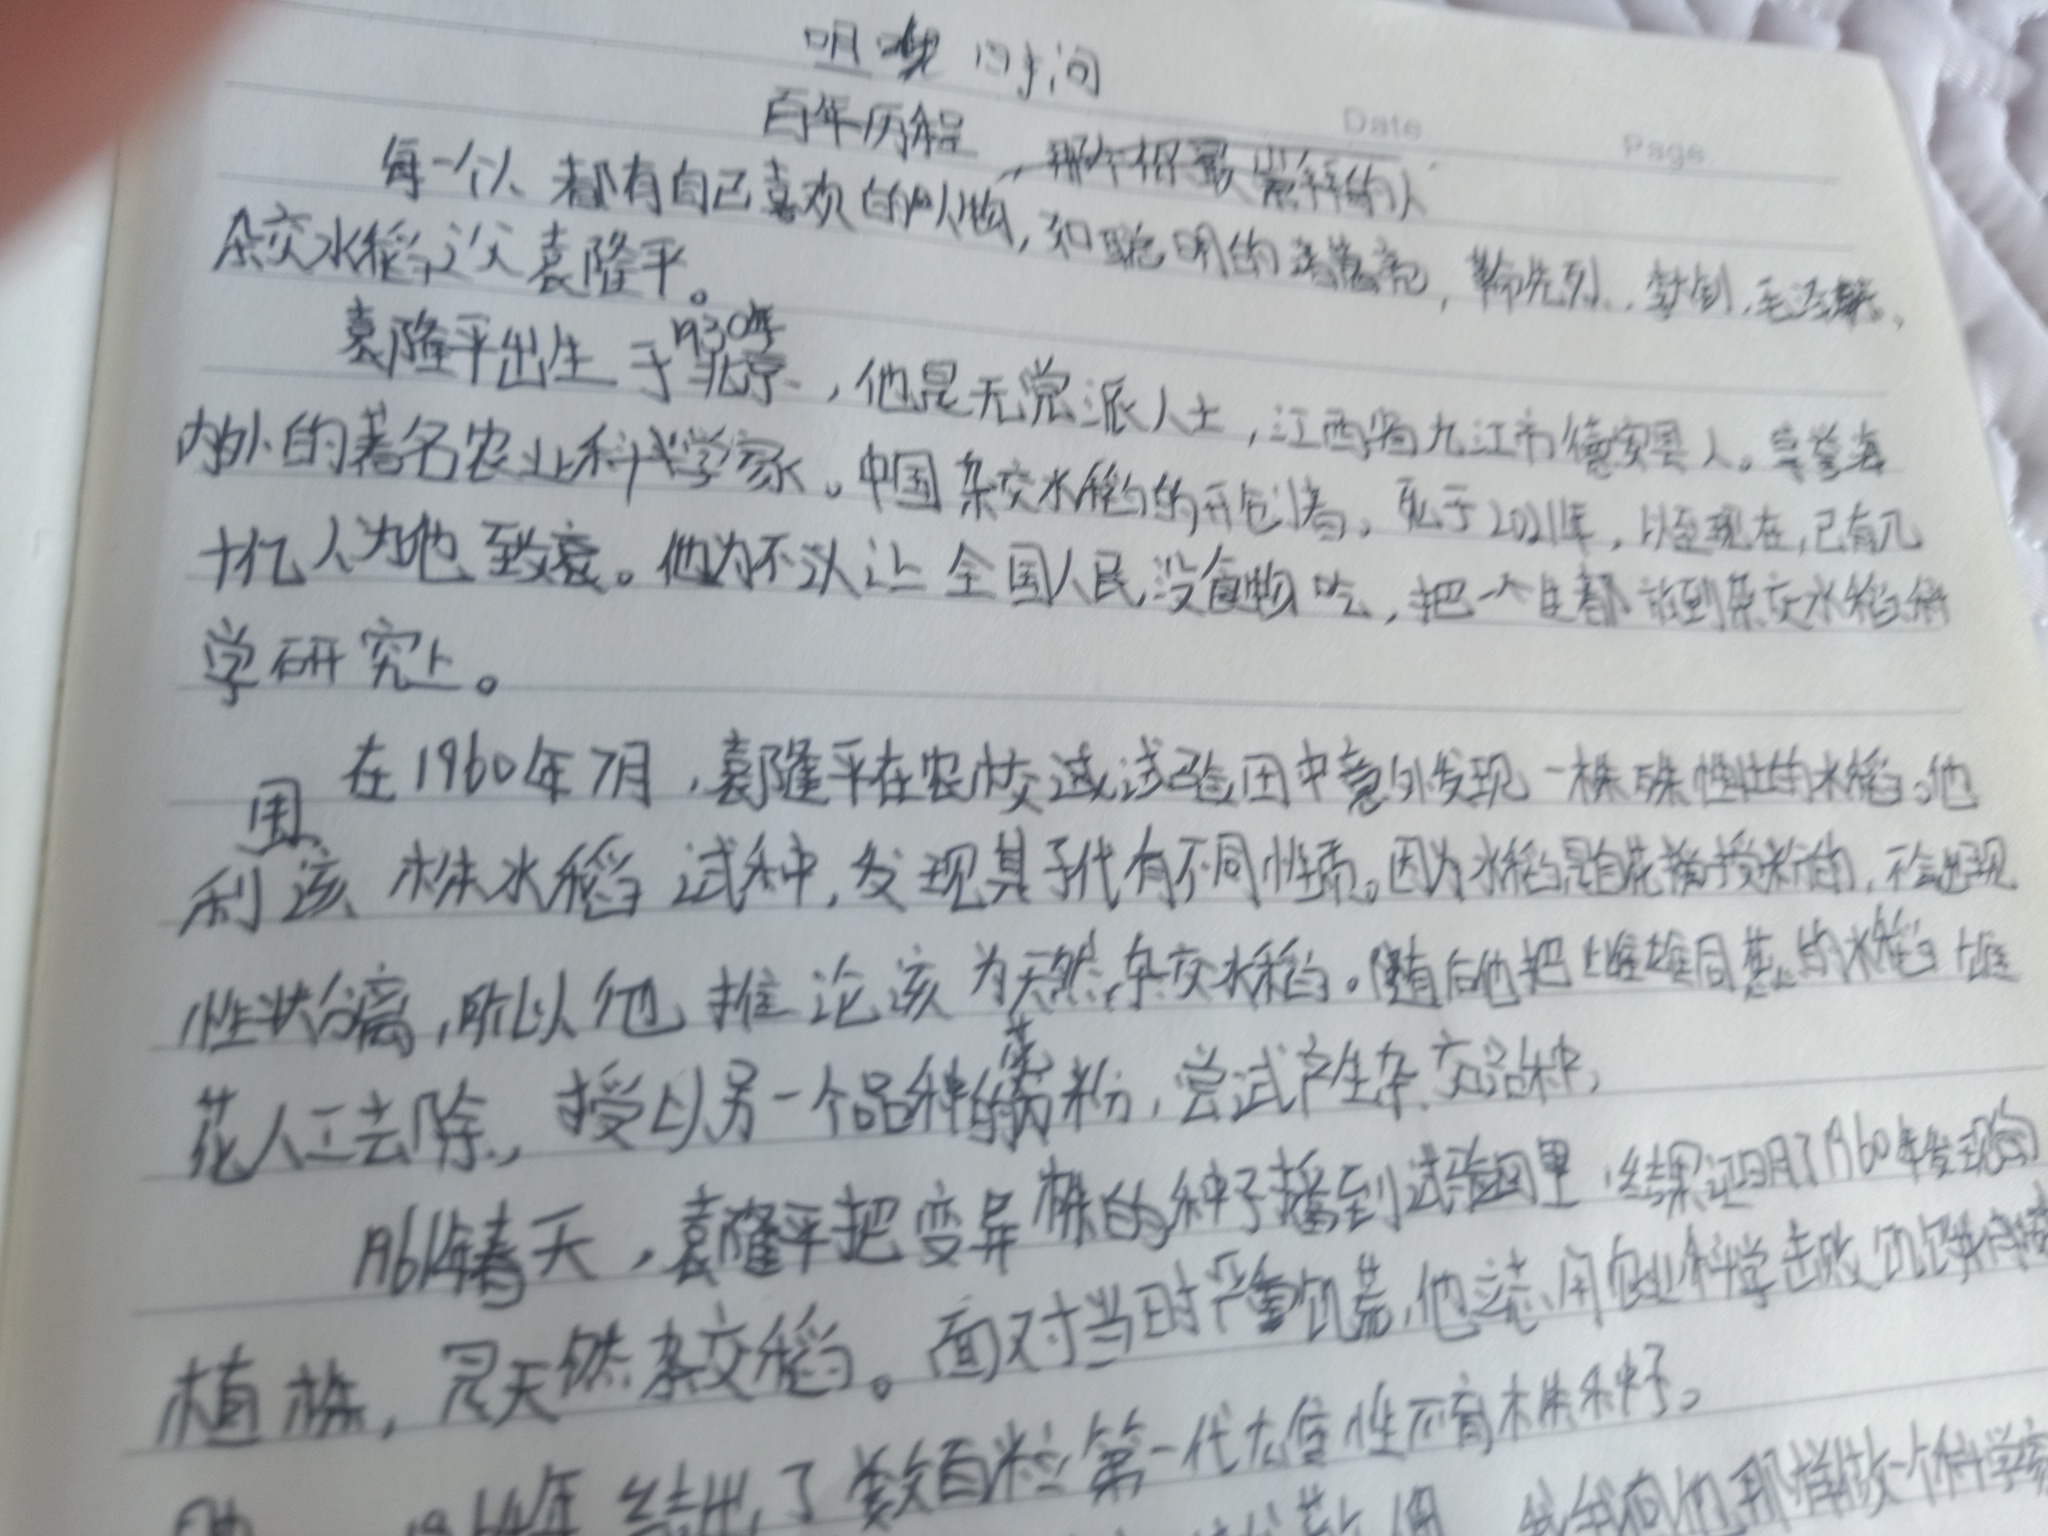 咀嚼时间
Date
Page
百年历程
每一个人都有自己喜欢的人物,如聪明的诸葛亮,革命先烈、梦
杂交水稻之父袁隆平。
1930年
袁隆平出生于北京,他是无党派人士,江西省九江市德安县人。享誉海
内外的著名农业科学家。中国杂交水稻的开创者,死于2021年,以至现在,已有几
十亿人为他致哀。他为不让全国人民没食物吃,把一生都放到杂交水稻科
学研究上。
在1960年7月,袁隆平在农校试验田中意外发现一株殊性状的水稻。他
用
利该株水稻试种,发现其子代有不同性质。因为水稻是自花授粉的,不会出现
性状分离,所以他推论该为天然杂交水稻。随后他把雌雄同蕊的水稻雄
花
花人工去除,授以另一个品种的粉,尝试产生杂交品种,
1961年春天,袁隆平把变异株的种子播到试验田里,结果证明了1960年发现的
植株,是天然杂交稻。面对当时严重饥荒,他立志用农业科学击败饥饿
1964年结出了数百粒第一代雄性不育株种子。
我向他那样做一个科学家